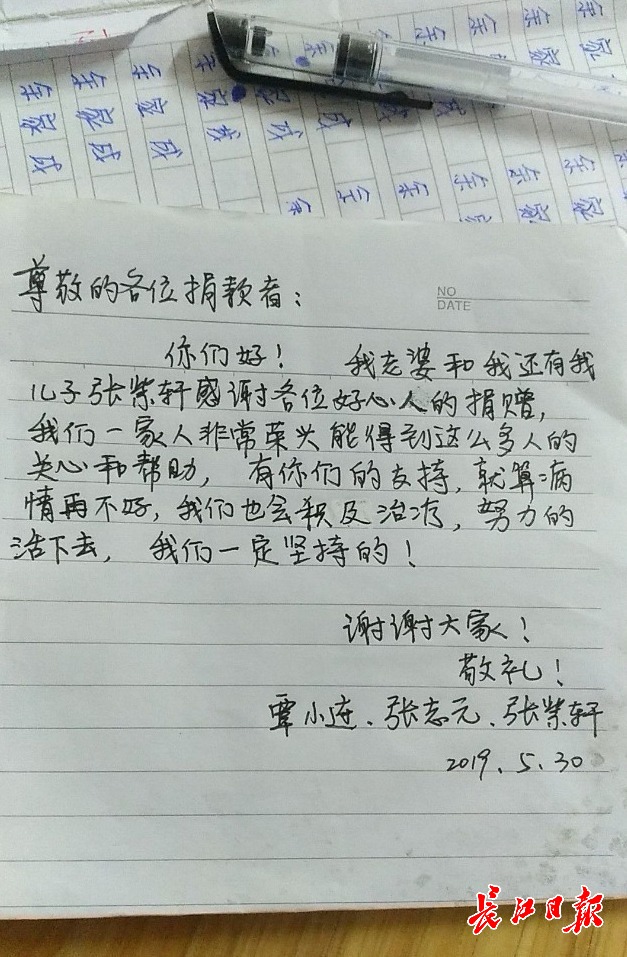 尊敬的各位捐款者：
NO
DATE
你们好！ 我老婆和我还有我
儿子张紫轩感谢各位好心人的捐赠，
我们一家人非常荣头能得到这么多人的
关心和帮助，有你们的支持，就算病
情再不好，我们也会积及治疗，努力的
活下去，我们一定坚持的！
谢谢大家！
敬礼！
覃小连、张志元、张紫轩
2019.5.30
长江日报